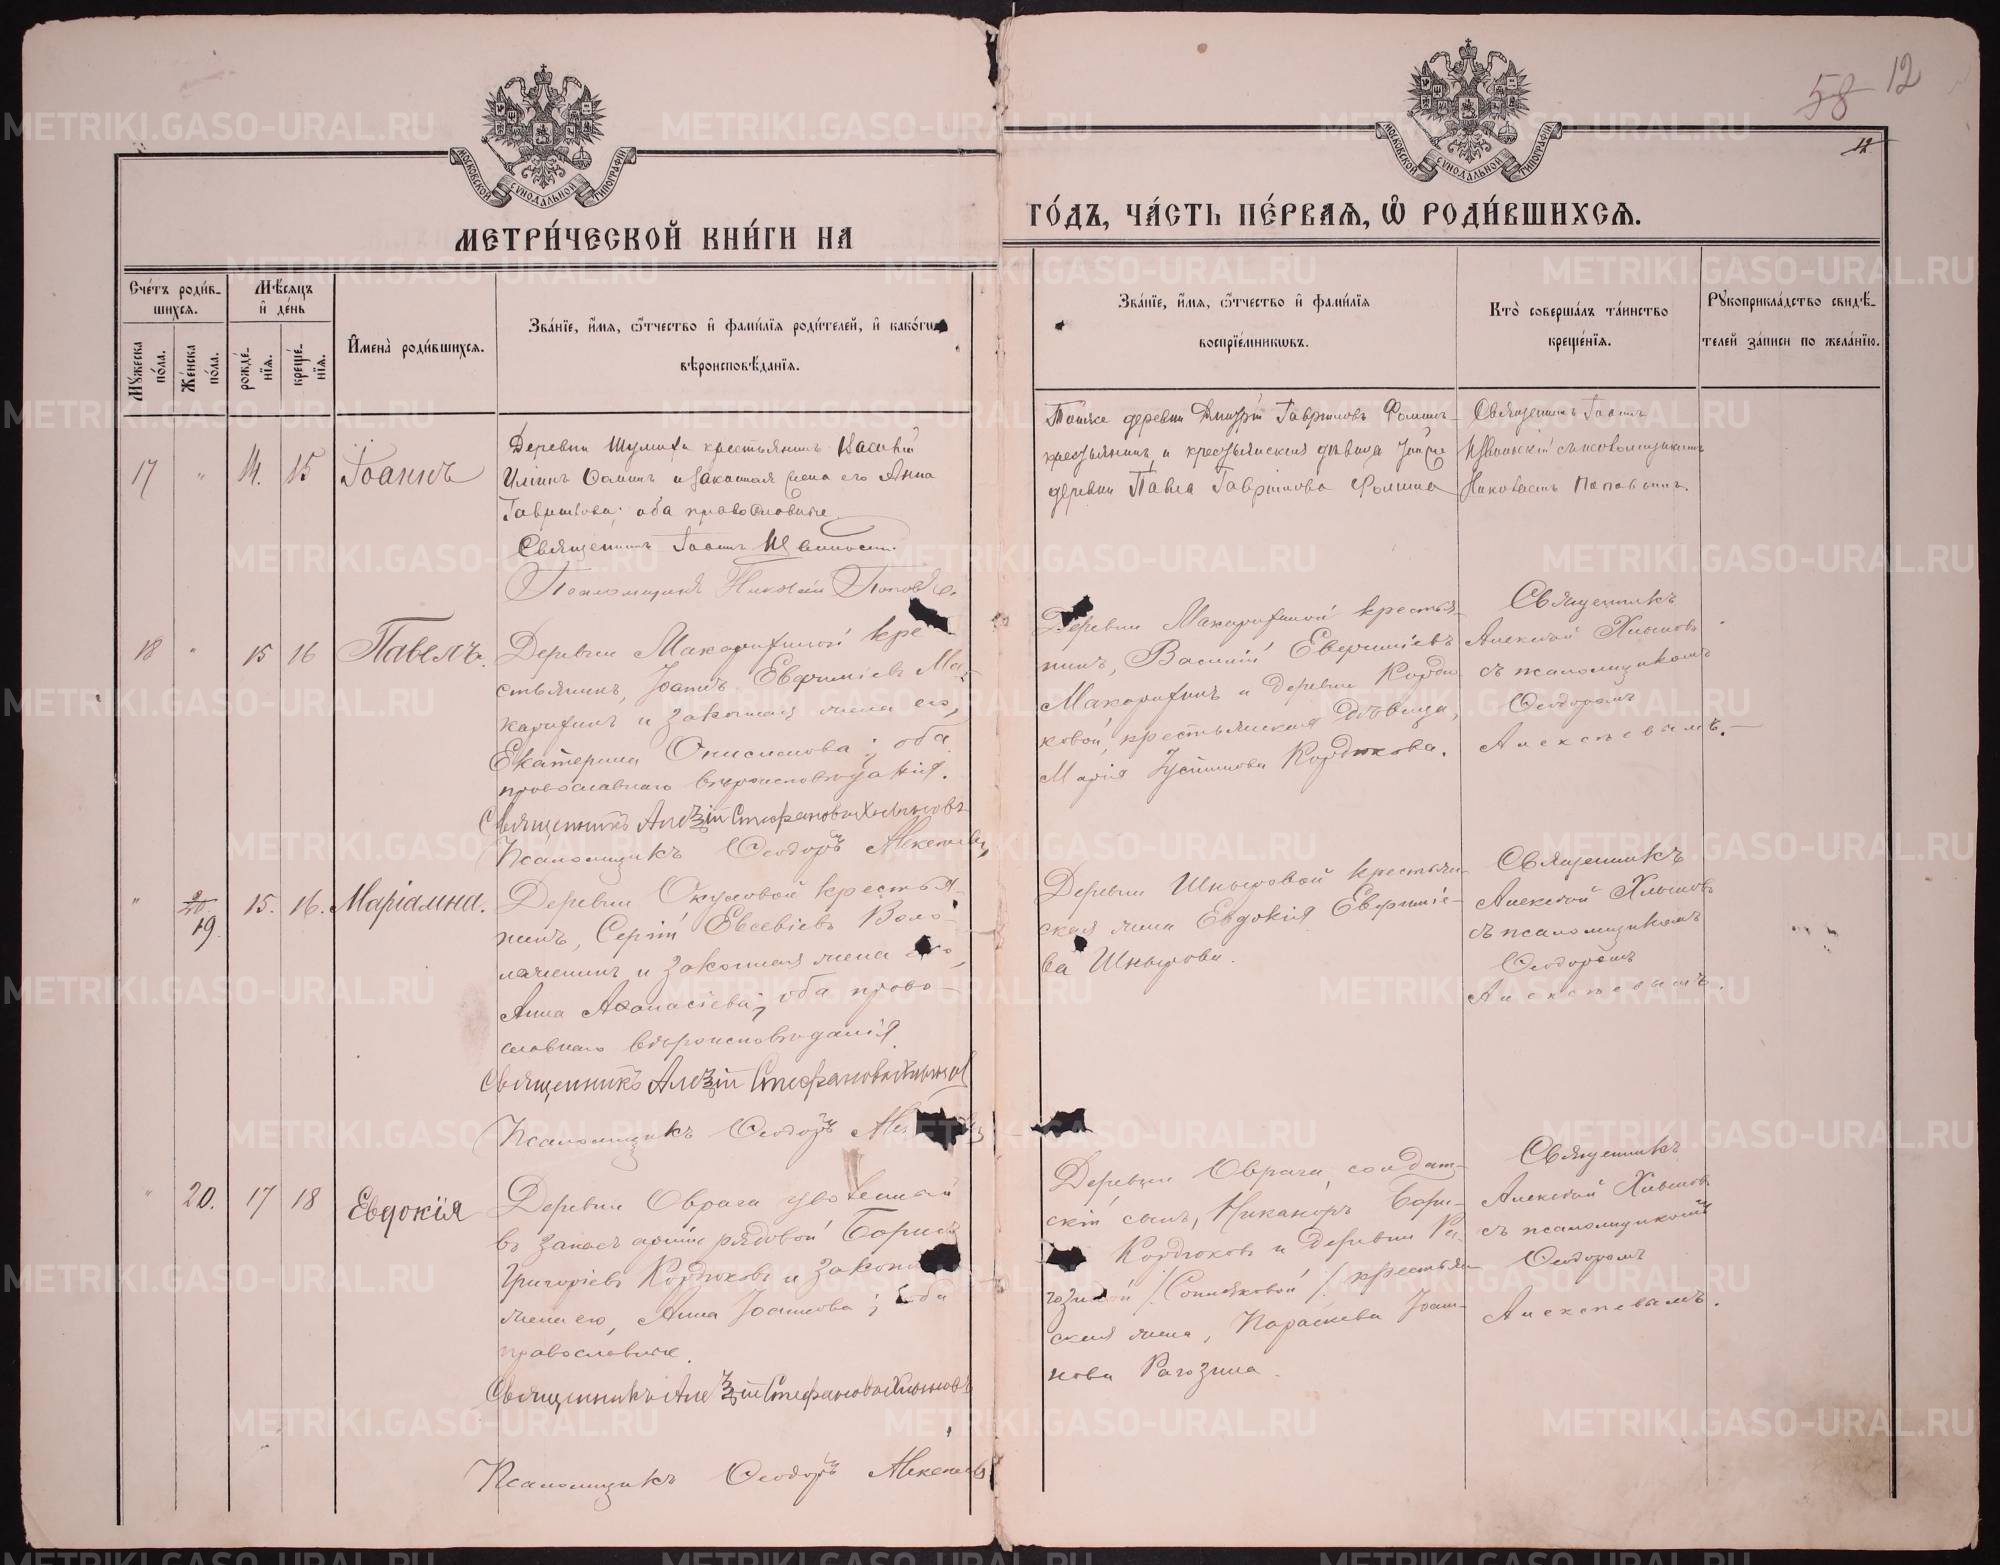 58 12
12
МОСКОВСКОЙ СѴНОДАЛЬНОЙ ТИПОГРАФІИ
МОСКОВСКОЙ СѴНОДАЛЬНОЙ ТИПОГРАФІИ
МЕТРИ́ЧЕСКОЙ КНИ́ГИ НА
ГО́ДЪ, ЧА́СТЬ ПЕ́РВАЯ, Ѡ РОДИ́ВШИХСЯ.
Сче́тъ роди́в-
шихся.
Мѣ́сяцъ
и де́нь
Мꙋ́жеска
по́ла.
Же́нска
по́ла.
рожде́-
нїя.
креще́-
нїя.
Имена̀ роди́вшихся.
Зва́нїе, и́мя, ѻ́тчество и фами́лїя роди́телей, и како́гѡ
вѣроисповѣ́данїя.
Зва́нїе, и́мя, ѻ́тчество и фами́лїя
воспрїе́мникѡвъ.
Кто̀ соверша́лъ та́инство
креще́нїя.
Рꙋкоприкла́дство свидѣ́-
телей за́писи по жела́нїю.
17 " 14. 15 Іоаннъ
Деревни Шумихи крестьянинъ Василій
Ѳоминъ и законная жена его Анна
Гаврилова; оба православные
Священникъ Іоаннъ
Псаломщикъ Николай Поповъ
Тойже деревни Дмитрій Гавриловъ Ѳоминъ
крестьянинъ и крестьянская дѣвица
деревни Павла Гаврилова Ѳомина
Священникъ Іоаннъ
съ псаломщикомъ
Николаемъ Поповымъ.
18 " 15 16 Павелъ.
Деревни Макарихиной кре-
стьянинъ, Іоаннъ Евфиміевъ Ма-
карихинъ и законная жена его,
Екатерина Онисимова; оба
православнаго вѣроисповѣданія.
Священникъ Алексій Стефановъ Хлыновъ
Псаломщикъ Ѳеодоръ Алексѣевъ
Деревни Макарихиной крестья-
нинъ, Василій Евфиміевъ
Макарихинъ и деревни Кордю-
ковой, крестьянская дѣвица,
Марія Іустинова Кордюкова.
Священникъ
Алексій Хлыновъ
съ псаломщикомъ
Ѳеодоромъ
Алексѣевымъ.
" 19 15. 16. Маріамна.
Деревни Окуловой крестья-
нинъ, Сергій Евсевіевъ Воло-
и законная жена его,
Анна Аѳанасіева; оба право-
славнаго вѣроисповѣданія
Священникъ Алексій Стефановъ Хлыновъ
Псаломщикъ Ѳеодоръ
Деревни Шныровой крестьян-
ская жена Евдокія Евфиміе-
ва Шнырова.
Священникъ
Алексій Хлыновъ
съ псаломщикомъ
Ѳеодоромъ
Алексѣевымъ.
" 20. 17 18 Евдокія
Деревни Оврага уволенный
въ запасъ арміи рядовой Борисъ
Григоріевъ Кордюковъ и законная
жена его, Анна Іоаннова; оба
православные.
Священникъ Алексій Стефановъ Хлыновъ
Псаломщикъ Ѳеодоръ Алексѣевъ
Деревни Оврага, солдат-
скій сынъ, Никаноръ Бори-
Кордюковъ и деревни Ра-
крестьян-
ская жена, Параскева Іоан-
нова Рагозина.
Священникъ
Алексій Хлыновъ
съ псаломщикомъ
Ѳеодоромъ
Алексѣевымъ.
METRIKI.GASO-URAL.RU